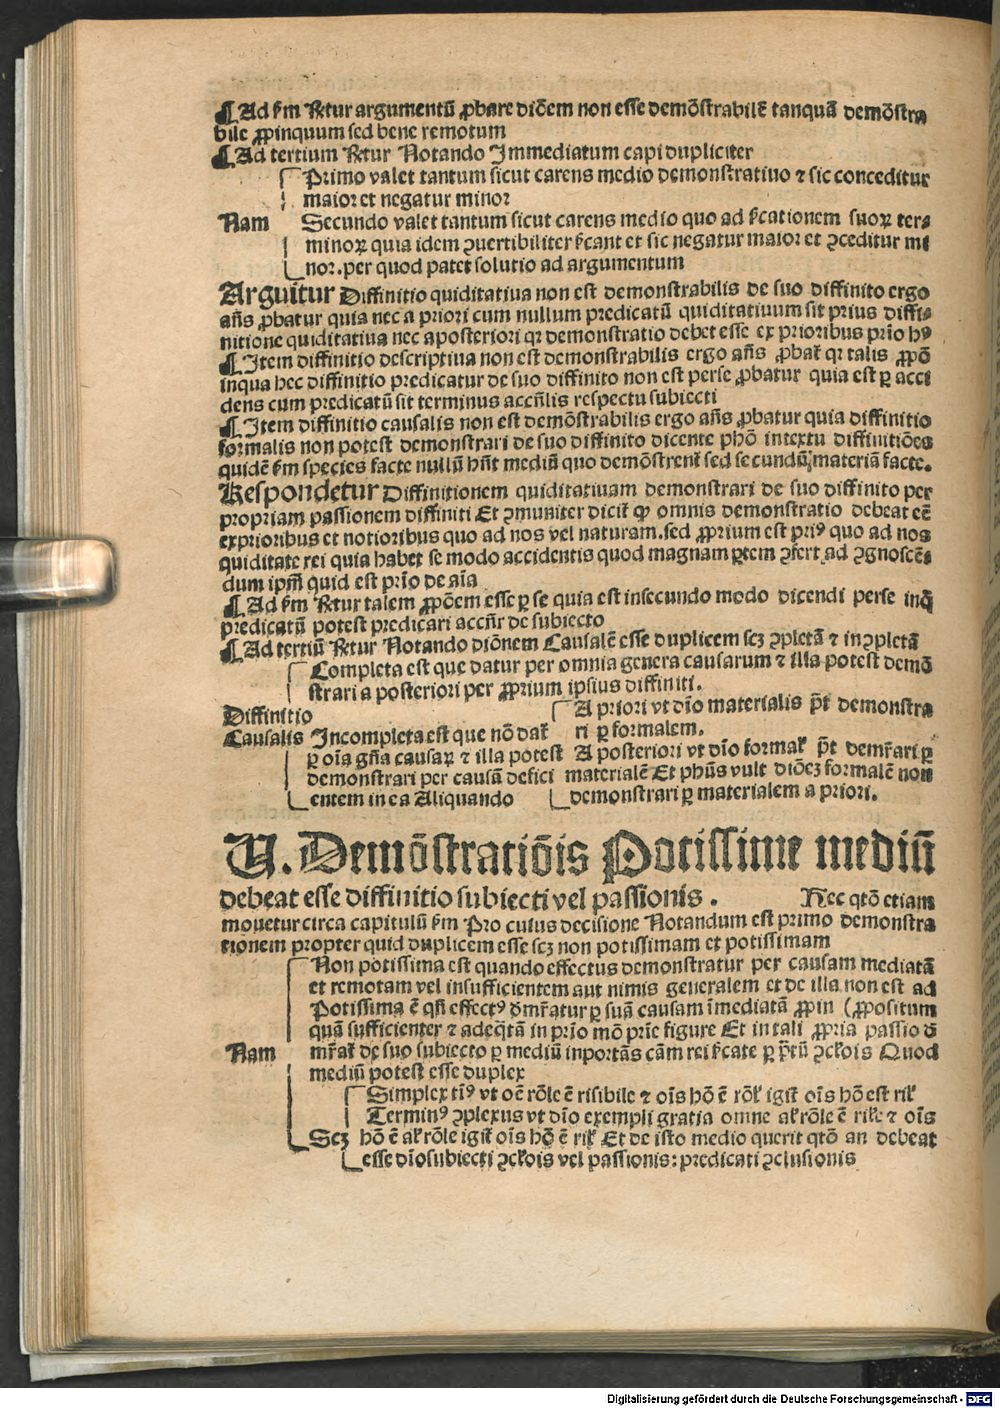 ¶Ad s̄m r̄etur argumentū ꝓbare diōem non esse demōstrabilē tanquā demōstra
bile ꝓpinquum sed bene remotum
¶Ad tertium r̄etur Notando Immediatum capi dupliciter
Primo valet tantum sicut carens medio demonstratiuo ⁊ sic conceditur
maior et negatur minor
Nam Secundo valet tantum sicut carens medio quo ad s̄cationem suoꝝ ter⸗
minoꝝ quia idem ꝯuertibiliter s̄cant et sic negatur maior et ꝯceditur mi
nor. per quod patet solutio ad argumentum
Arguitur Diffinitio quiditatiua non est demonstrabilis de suo diffinito ergo
añs ꝓbatur quia nec a priori cum nullum predicatū quiditatiuum sit prius diffi⸗
nitione quiditatiua nec aposteriori qꝛ demonstratio debet esse ex prioribus pr̄io hꝰ
¶Item diffinitio descriptiua non est demonstrabilis ergo añs ꝓbat̄ qꝛ talis ꝓpō
inqua hec diffinitio predicatur de suo diffinito non est perse ꝓbatur quia est ꝑ acci
dens cum predicatū sit terminus accn̄lis respectu subiecti
¶Item diffinitio causalis non est demōstrabilis ergo añs ꝓbatur quia diffinitio
formalis non potest demonstrari de suo diffinito dicente phō intextu diffinitiōes
quidē s̄m species facte nullū hn̄t mediū quo demōstrent̄ sed secundū materiā facte.
Respondetur Diffinitionem quiditatiuam demonstrari de suo diffinito per
propriam passionem diffiniti Et ꝯmuniter dicit̄ ꝙ omnis demonstratio debeat eē
exprioribus et notioribus quo ad nos vel naturam. sed ꝓprium est priꝰ quo ad nos
quiditate rei quia habet se modo accidentis quod magnam ꝑtem ꝯfert ad ꝯgnoscē⸗
dum ipm̄ quid est pr̄io de aīa
¶Ad s̄m r̄etur talem ꝓpōem esse ꝑ se quia est insecundo modo dicendi perse inq̄
predicatū potest predicari accn̄r de subiecto
¶Ad tertiū r̄etur Notando diōnem Causalē esse duplicem scꝫ ꝯpletā ⁊ inꝯpletā
Completa est que datur per omnia genera causarum ⁊ illa potest demō
strari a posteriori per ꝓprium ipsius diffiniti.
Diffinitio A priori vt dīo materialis pt̄ demonstra
Causalis Incompleta est que nō dat̄ ri ꝑ formalem.
ꝑ oīa gn̄a causaꝝ ⁊ illa potest A posteriori vt dīo formal̄ pt̄ demr̄ari ꝑ
demonstrari per causā defici materialē Et phūs vult diōeꝫ formalē non
entem in ea Aliquando demonstrari ꝑ materialem a priori.
V. Demōstratiōis Potissime mediū
debeat esse diffinitio subiecti vel passionis. Hec qtō etiam
mouetur circa capitulū s̄m Pro cuius decisione Notandum est primo demonstra
tionem propter quid duplicem esse scꝫ non potissimam et potissimam
Non potissima est quando effectus demonstratur per causam mediatā
et remotam vel insufficientem aut nimis generalem et de illa non est ad
Potissima ē qn̄ effectꝰ dm̄r̄atur ꝑ suā causam īmediatā ꝓpin (ꝓpositum
quā sufficienter ⁊ adeq̄tā in pr̄io mō pr̄ie figure Et in tali ꝓpria passio d̄
Nam mr̄at̄ de suo subiecto ꝑ mediū inportās cām rei s̄cate ꝑ pr̄tū ꝯcl̄ois Quod
mediū potest esse duplex
Simplex tīꝰ vt oē rōle ē risibile ⁊ oīs hō ē rōl̄ igit̄ oīs hō est ril̄
Terminꝰ ꝯplexus vt dīo exempli gratia omne al̄ rōle ē rile ⁊ oīs
Scꝫ hō ē al̄ rōle igit̄ oīs hō ē ril̄ Et de isto medio querit qtō an debeat
esse dīo subiecti ꝯcl̄ois vel passionis: predicati ꝯclusionis
Digitalisierung gefördert durch die Deutsche Forschungsgemeinschaft - DFG